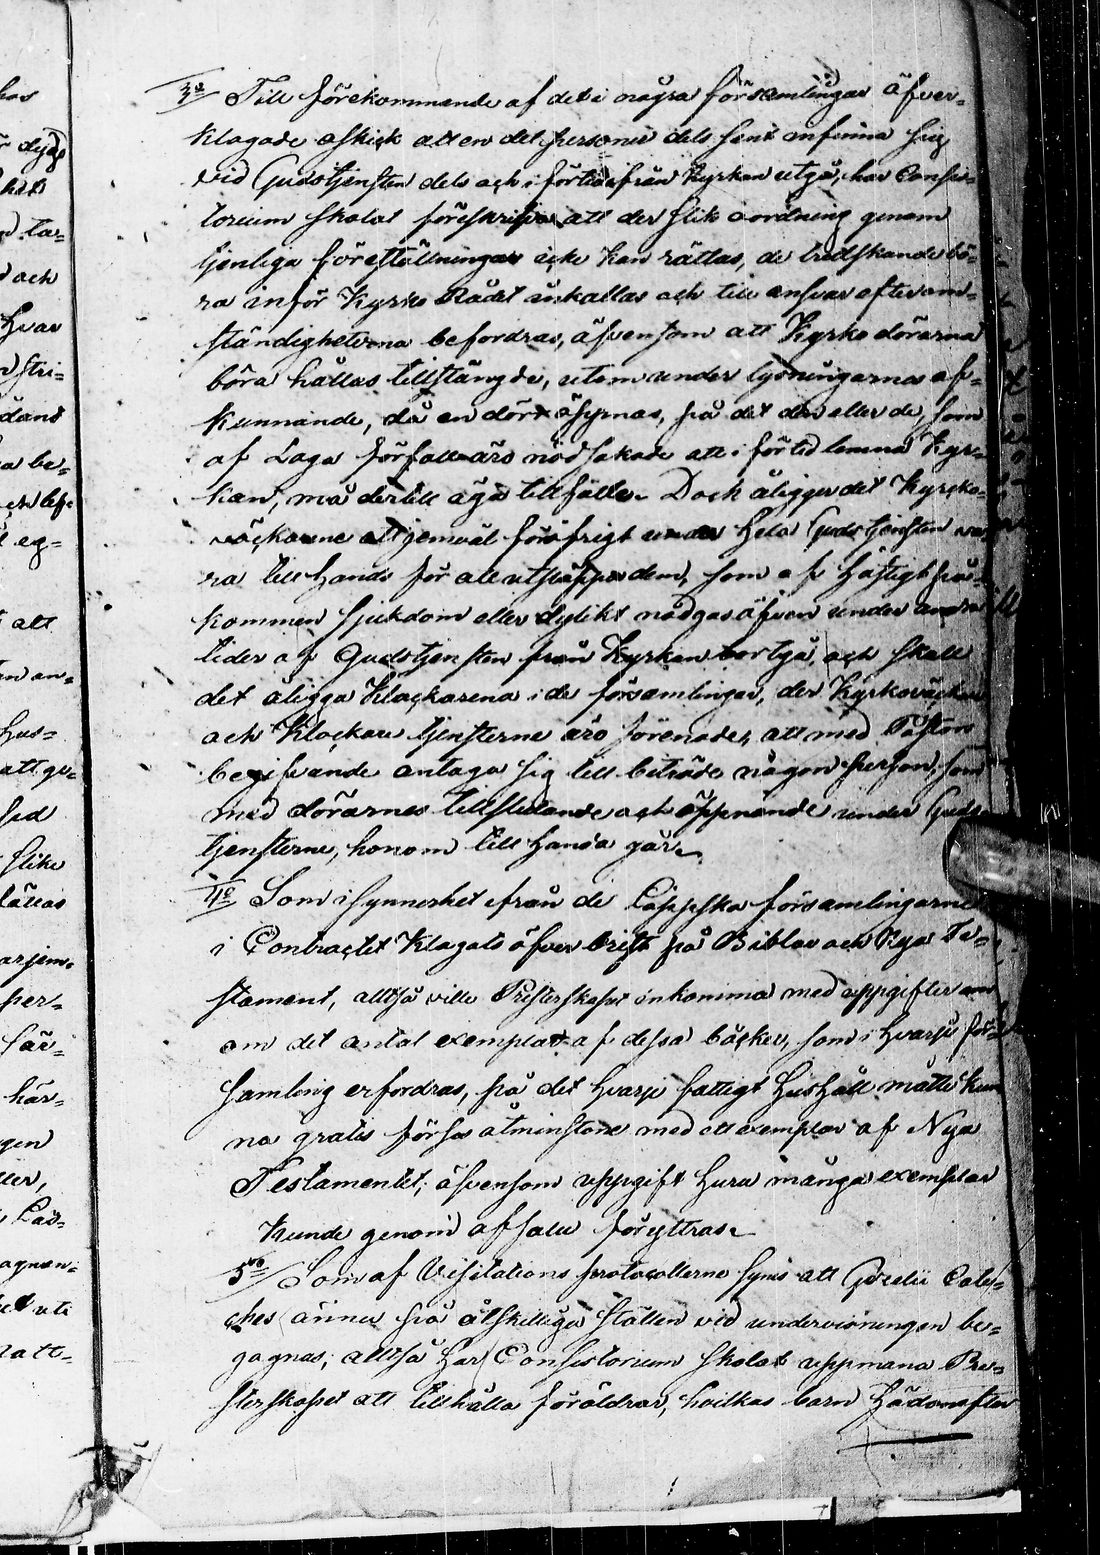 hos
dess
d ta-
d och
Hvar
stri-
dant
a be-
eg-
att
an an-
Hus-
att ge-
sed
slike
låttas
arjem-
per-
sär-
här-
gen
ller,
agnan-
et uti
natt-
3o/ Till förekommande af det i några församlingar äfver-
klagade oskick att en del personer dels sent infinna sig
vid Gudstjensten dels och i förtid ifrån kyrkan utgå, har Consis-
torium skolat föreskrifva att der slik oordning genom
tjenliga föreställningar icke kan rättas, de tredskande bö-
ra inför Kyrko Rådet inkallas och till ansvar efter om-
ständigheterna befordras, äfvensom att Kyrko dörarna
böra hållas tillstängde, utom under lysningarnas af-
kunnande, då en dörr öfpnas, på det den eller de, som
af Laga förfall äro nödsakade att i förtid lemna Kyr-
kan, må dertill äga tillfälle. Dock åligger det Kyrcko-
väckarne att jemväl föröfrigt under hela Gudstjensten va-
ra till hands för att utsläppa dem, som af häftigt på-
kommen sjukdom eller dylikt nödgas äfven under andra
tider af Gudstjensten från Kyrkan bortgå, och skall
det åligga Klockarena i de församlingar, der Kyrkoväckare
och Klockare tjensterne äro förenade, att med Pastors
begifvande antaga sig till biträde någon person, som
med dörarnes tillslutande och öppnande under Guds-
tjensterne, honom till handa går.
4o/ Som i synnerhet ifrån de Lappska församlingarne
i Contractet klagats öfver brist på Biblar och Nya Te-
stament, alltså ville Presterskapet inkomma med uppgifter
om det antal exemplar af dessa böcker, som i hvarje för-
samling erfordras, på det hvarje fattigt hushåll måtte kun
na gratis förses åtminstone med ett exemplar af Nya
Testamentet; äfvensom uppgift huru många exemplar
kunde genom afsalu föryttras.
5o/ Som af Visitations protocollerne synes att Gezelii Cate-
ches ännu på åtskilliga ställen vid undervisningen be-
gagnas; alltså har Consistorium skolat uppmana Pre-
sterskapet att tillhålla föräldrar, hvilkas barn hädanefter